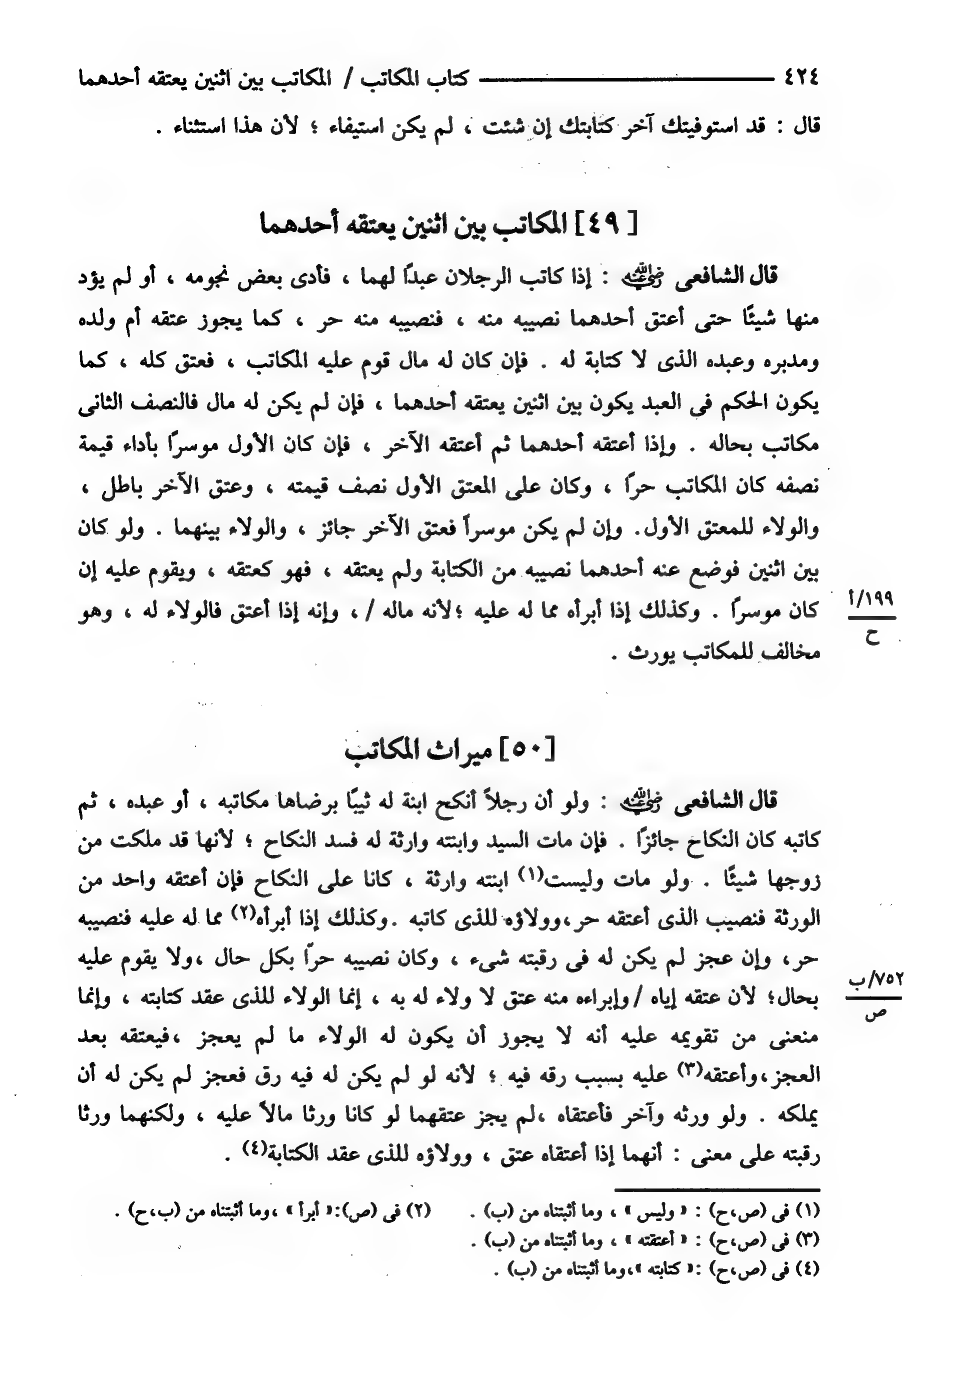 ٤٢٤ ــــــــ كتاب المكاتب / المكاتب بين اثنين يعتقه أحدهما
قال : قد استوفيتك آخر كتابتك إن شئت ، لم يكن استيفاء ؛ لأن هذا استثناء .
[ ٤٩] المكاتب بين اثنين يعتقه أحدهما
قال الشافعى رضي الله عنه : إذا كاتب الرجلان عبدًا لهما ، فأدى بعض نجومه ، أو لم يؤد
منها شيئًا حتى أعتق أحدهما نصيبه منه ، فنصيبه منه حر ، كما يجوز عتقه أم ولده
ومدبره وعبده الذى لا كتابة له . فإن كان له مال قوم عليه المكاتب ، فعتق كله ، كما
يكون الحكم فى العبد يكون بين اثنين يعتقه أحدهما ، فإن لم يكن له مال فالنصف الثانى
مكاتب بحاله . وإذا أعتقه أحدهما ثم أعتقه الآخر ، فإن كان الأول موسرًا بأداء قيمة
نصفه كان المكاتب حرًا ، وكان على المعتق الأول نصف قيمته ، وعتق الآخر باطل ،
والولاء للمعتق الأول. وإن لم يكن موسراً فعتق الآخر جائز ، والولاء بينهما . ولو كان
بين اثنين فوضع عنه أحدهما نصيبه من الكتابة ولم يعتقه ، فهو كعتقه ، ويقوم عليه إن
كان موسرًا . وكذلك إذا أبرأه مما له عليه ؛لأنه ماله /، وإنه إذا أعتق فالولاء له ، وهو
١٩٩/أ
ح
مخالف للمكاتب يورث .
[٥٠] ميراث المكاتب
قال الشافعى رضي الله عنه : ولو أن رجلاً أنكح ابنة له ثيبًا برضاها مكاتبه ، أو عبده ، ثم
كاتبه كان النكاح جائزًا . فإن مات السيد وابنته وارثة له فسد النكاح ؛ لأنها قد ملكت من
زوجها شيئًا . ولو مات وليست(١) ابنته وارثة ، كانا على النكاح فإن أعتقه واحد من
الورثة فنصيب الذى أعتقه حر،وولاؤه للذى كاتبه .وكذلك إذا أبرأه(٢) مما له عليه فنصيبه
حر، وإن عجز لم يكن له فى رقبته شىء ، وكان نصيبه حرًا بكل حال ،ولا يقوم عليه
بحال؛ لأن عتقه إياه /وإبراءه منه عتق لا ولاء له به ، إنما الولاء للذى عقد كتابته ، وإنما
٧٥٢/ب
ص
منعنى من تقويمه عليه أنه لا يجوز أن يكون له الولاء ما لم يعجز ،فيعتقه بعد
العجز،وأعتقه(٣) عليه بسبب رقه فيه ؛ لأنه لو لم يكن له فيه رق فعجز لم يكن له أن
يملكه . ولو ورثه وآخر فأعتقاه ،لم يجز عتقهما لو كانا ورثا مالاً عليه ، ولكنهما ورثا
رقبته على معنى : أنهما إذا أعتقاه عتق ، وولاؤه للذى عقد الكتابة(٤) .
(١) فى (ص،ح) : « وليس » ، وما أثبتناه من (ب) . (٢) فى (ص):« أبرأ » ،وما أثبتناه من (ب،ح) .
(٣) فى (ص،ح) : « أعتقته » ، وما أثبتناه من (ب) .
(٤) فى (ص،ح) :« كتابته »،وما أثبتناه من (ب) .